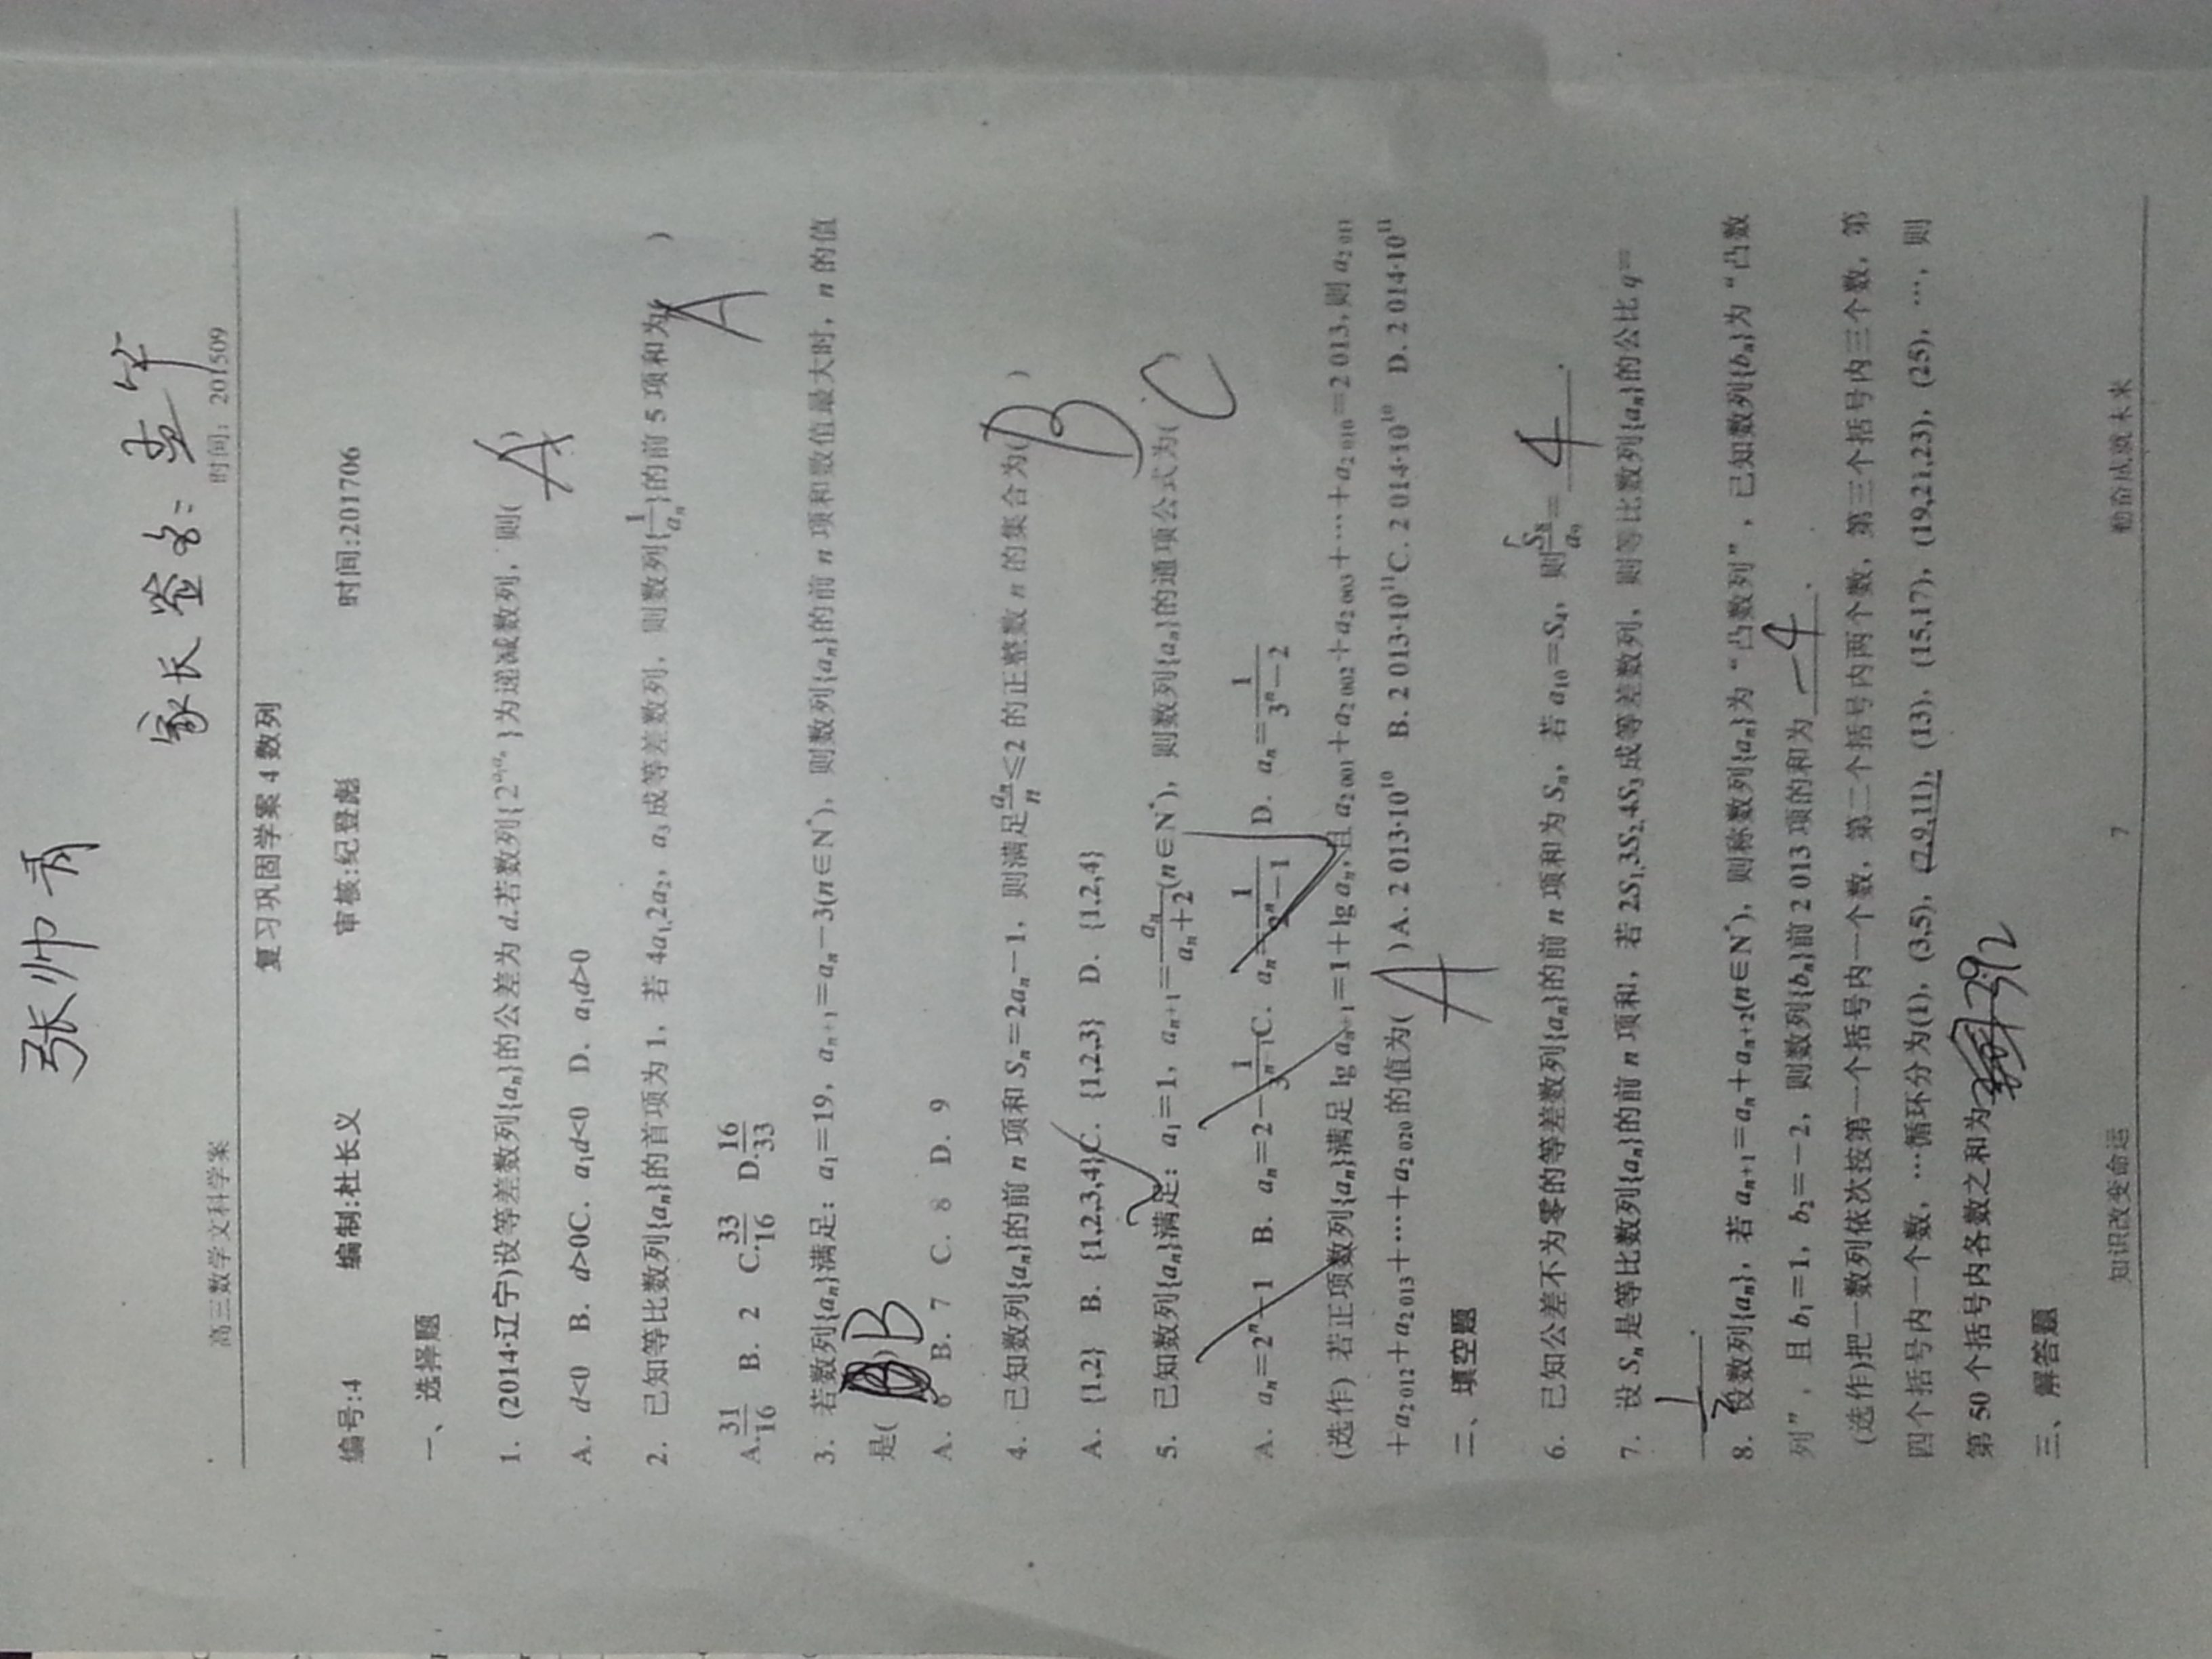 张帅青
家长签名:孟华
高三数学文科学案 时间：201509
复习巩固学案 4 数列
编号:4 编制:杜长义 审核:纪登彪 时间:201706
一、选择题
1．(2014·辽宁)设等差数列{aₙ}的公差为 d.若数列{2^(a₁aₙ)}为递减数列，则( A )
A．d<0 B．d>0C．a₁d<0 D．a₁d>0
2．已知等比数列{aₙ}的首项为 1，若 4a₁,2a₂，a₃成等差数列，则数列{1/aₙ}的前 5 项和为( A )
A.31/16 B．2 C.33/16 D.16/33
3．若数列{aₙ}满足：a₁＝19，aₙ₊₁＝aₙ－3(n∈N*)，则数列{aₙ}的前 n 项和数值最大时，n 的值
是( ) B
A．6 B．7 C．8 D．9
4．已知数列{aₙ}的前 n 项和 Sₙ＝2aₙ－1，则满足aₙ/n≤2 的正整数 n 的集合为( B )
A．{1,2} B．{1,2,3,4}C．{1,2,3} D．{1,2,4}
5．已知数列{aₙ}满足：a₁＝1，aₙ₊₁＝aₙ/(aₙ＋2)(n∈N*)，则数列{aₙ}的通项公式为( C )
A．aₙ＝2ⁿ－1 B．aₙ＝2－1/3ⁿ⁻¹C．aₙ＝1/(2ⁿ－1) D．aₙ＝1/(3ⁿ－2)
(选作) 若正项数列{aₙ}满足 lg aₙ₊₁＝1＋lg aₙ，且 a₂ ₀₀₁＋a₂ ₀₀₂＋a₂ ₀₀₃＋…＋a₂ ₀₁₀＝2 013，则 a₂ ₀₁₁
＋a₂ ₀₁₂＋a₂ ₀₁₃＋…＋a₂ ₀₂₀ 的值为( A )A．2 013·10¹⁰ B．2 013·10¹¹C．2 014·10¹⁰ D．2 014·10¹¹
二、填空题
6．已知公差不为零的等差数列{aₙ}的前 n 项和为 Sₙ，若 a₁₀＝S₄，则S₈/a₉＝ 4 .
7．设 Sₙ 是等比数列{aₙ}的前 n 项和，若 2S₁,3S₂,4S₃成等差数列，则等比数列{aₙ}的公比 q＝
1/2 .
8．设数列{aₙ}，若 aₙ₊₁＝aₙ＋aₙ₊₂(n∈N*)，则称数列{aₙ}为“凸数列”，已知数列{bₙ}为“凸数
列”，且 b₁＝1，b₂＝－2，则数列{bₙ}前 2 013 项的和为 -4 .
(选作)把一数列依次按第一个括号内一个数，第二个括号内两个数，第三个括号内三个数，第
四个括号内一个数，…循环分为(1)，(3,5)，(7,9,11)，(13)，(15,17)，(19,21,23)，(25)，…，则
第 50 个括号内各数之和为 392
三、解答题
知识改变命运 7 勤奋成就未来